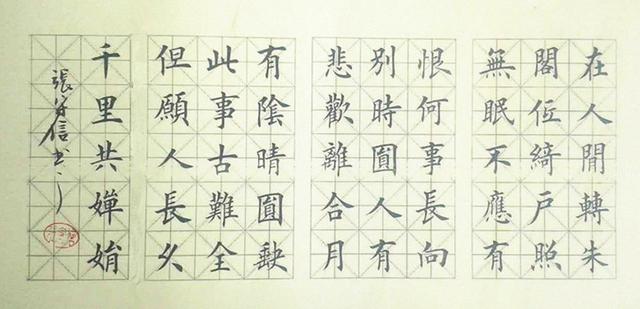 在人間轉朱
閣低綺戶照
無眠不應有
恨何事長向
別時圓人有
悲歡離合月
有陰晴圓缺
此事古難全
但願人長久
千里共嬋娟
張信书